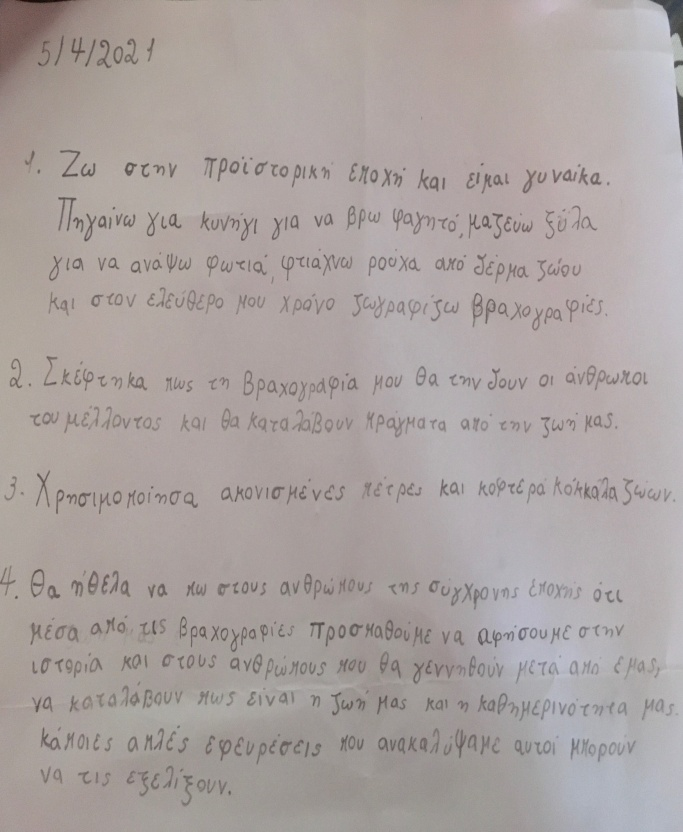 5/4/2021
1. Ζω στην προϊστορική εποχή και είμαι γυναίκα.
Πηγαίνω για κυνήγι για να βρω φαγητό, μαζεύω ξύλα
για να ανάψω φωτιά, φτιάχνω ρούχα από δέρμα ζώου
και στον ελεύθερο μου χρόνο ζωγραφίζω βραχογραφίες.
2. Σκέφτηκα πως τη βραχογραφία μου θα την δουν οι άνθρωποι
του μέλλοντος και θα καταλάβουν πράγματα από την ζωή μας.
3. Χρησιμοποίησα ακονισμένες πέτρες και κοφτερά κόκκαλα ζώων.
4. Θα ήθελα να πω στους ανθρώπους της σύγχρονης εποχής ότι
μέσα από τις βραχογραφίες προσπαθούμε να αφήσουμε στην
ιστορία και στους ανθρώπους που θα γεννηθούν μετά από εμάς,
να καταλάβουν πως είναι η ζωή μας και η καθημερινότητα μας.
κάποιες απλές εφευρέσεις που ανακαλύψαμε αυτοί μπορούν
να τις εξελίξουν.